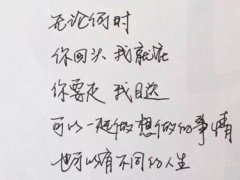 无论何时
你回头 我就在
你要走 我目送
可以一起做想做的事情
也可以有不同的人生